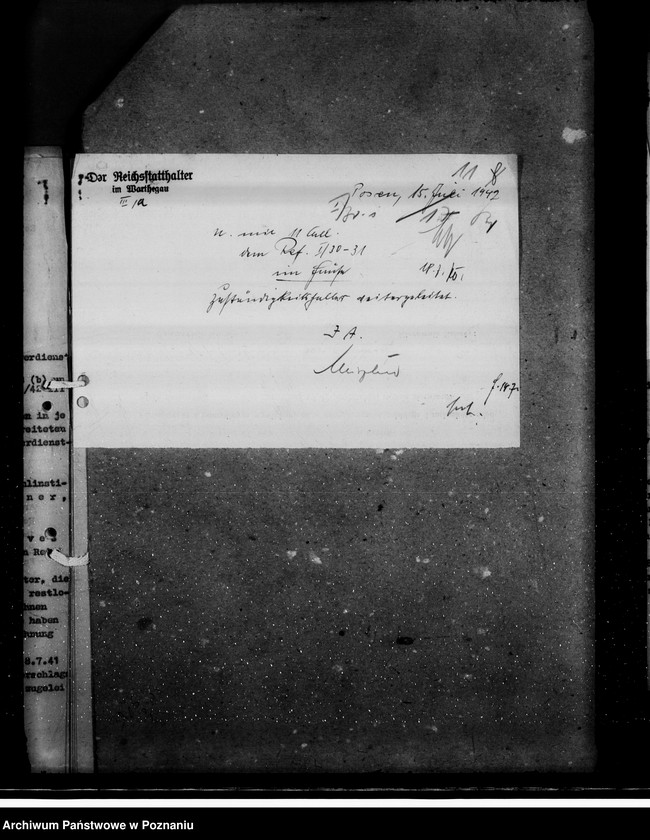 Der Reichsstatthalter
im Warthegau
11
Posen, 15. Juli 1942
u. mit 11 Anl.
dem Ref. I/30-31
im Hause
18.7.
Zuständigkeitshalber weitergeleitet.
I A.
erdienst
(b) un
n in je
reiteten
rdienst-
linsti-
n e r ,
v e
n Re
tor, die
restlo-
hnen
haben
hnung
8.7.41
erschlag
zugelei
Archiwum Państwowe w Poznaniu